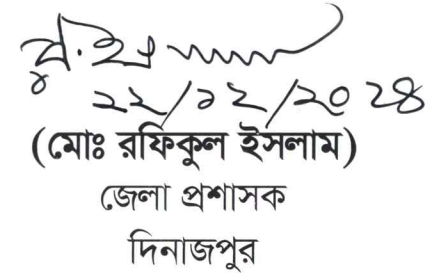 ২২/১২/২০২৪
(মোঃ রফিকুল ইসলাম)
জেলা প্রশাসক
দিনাজপুর